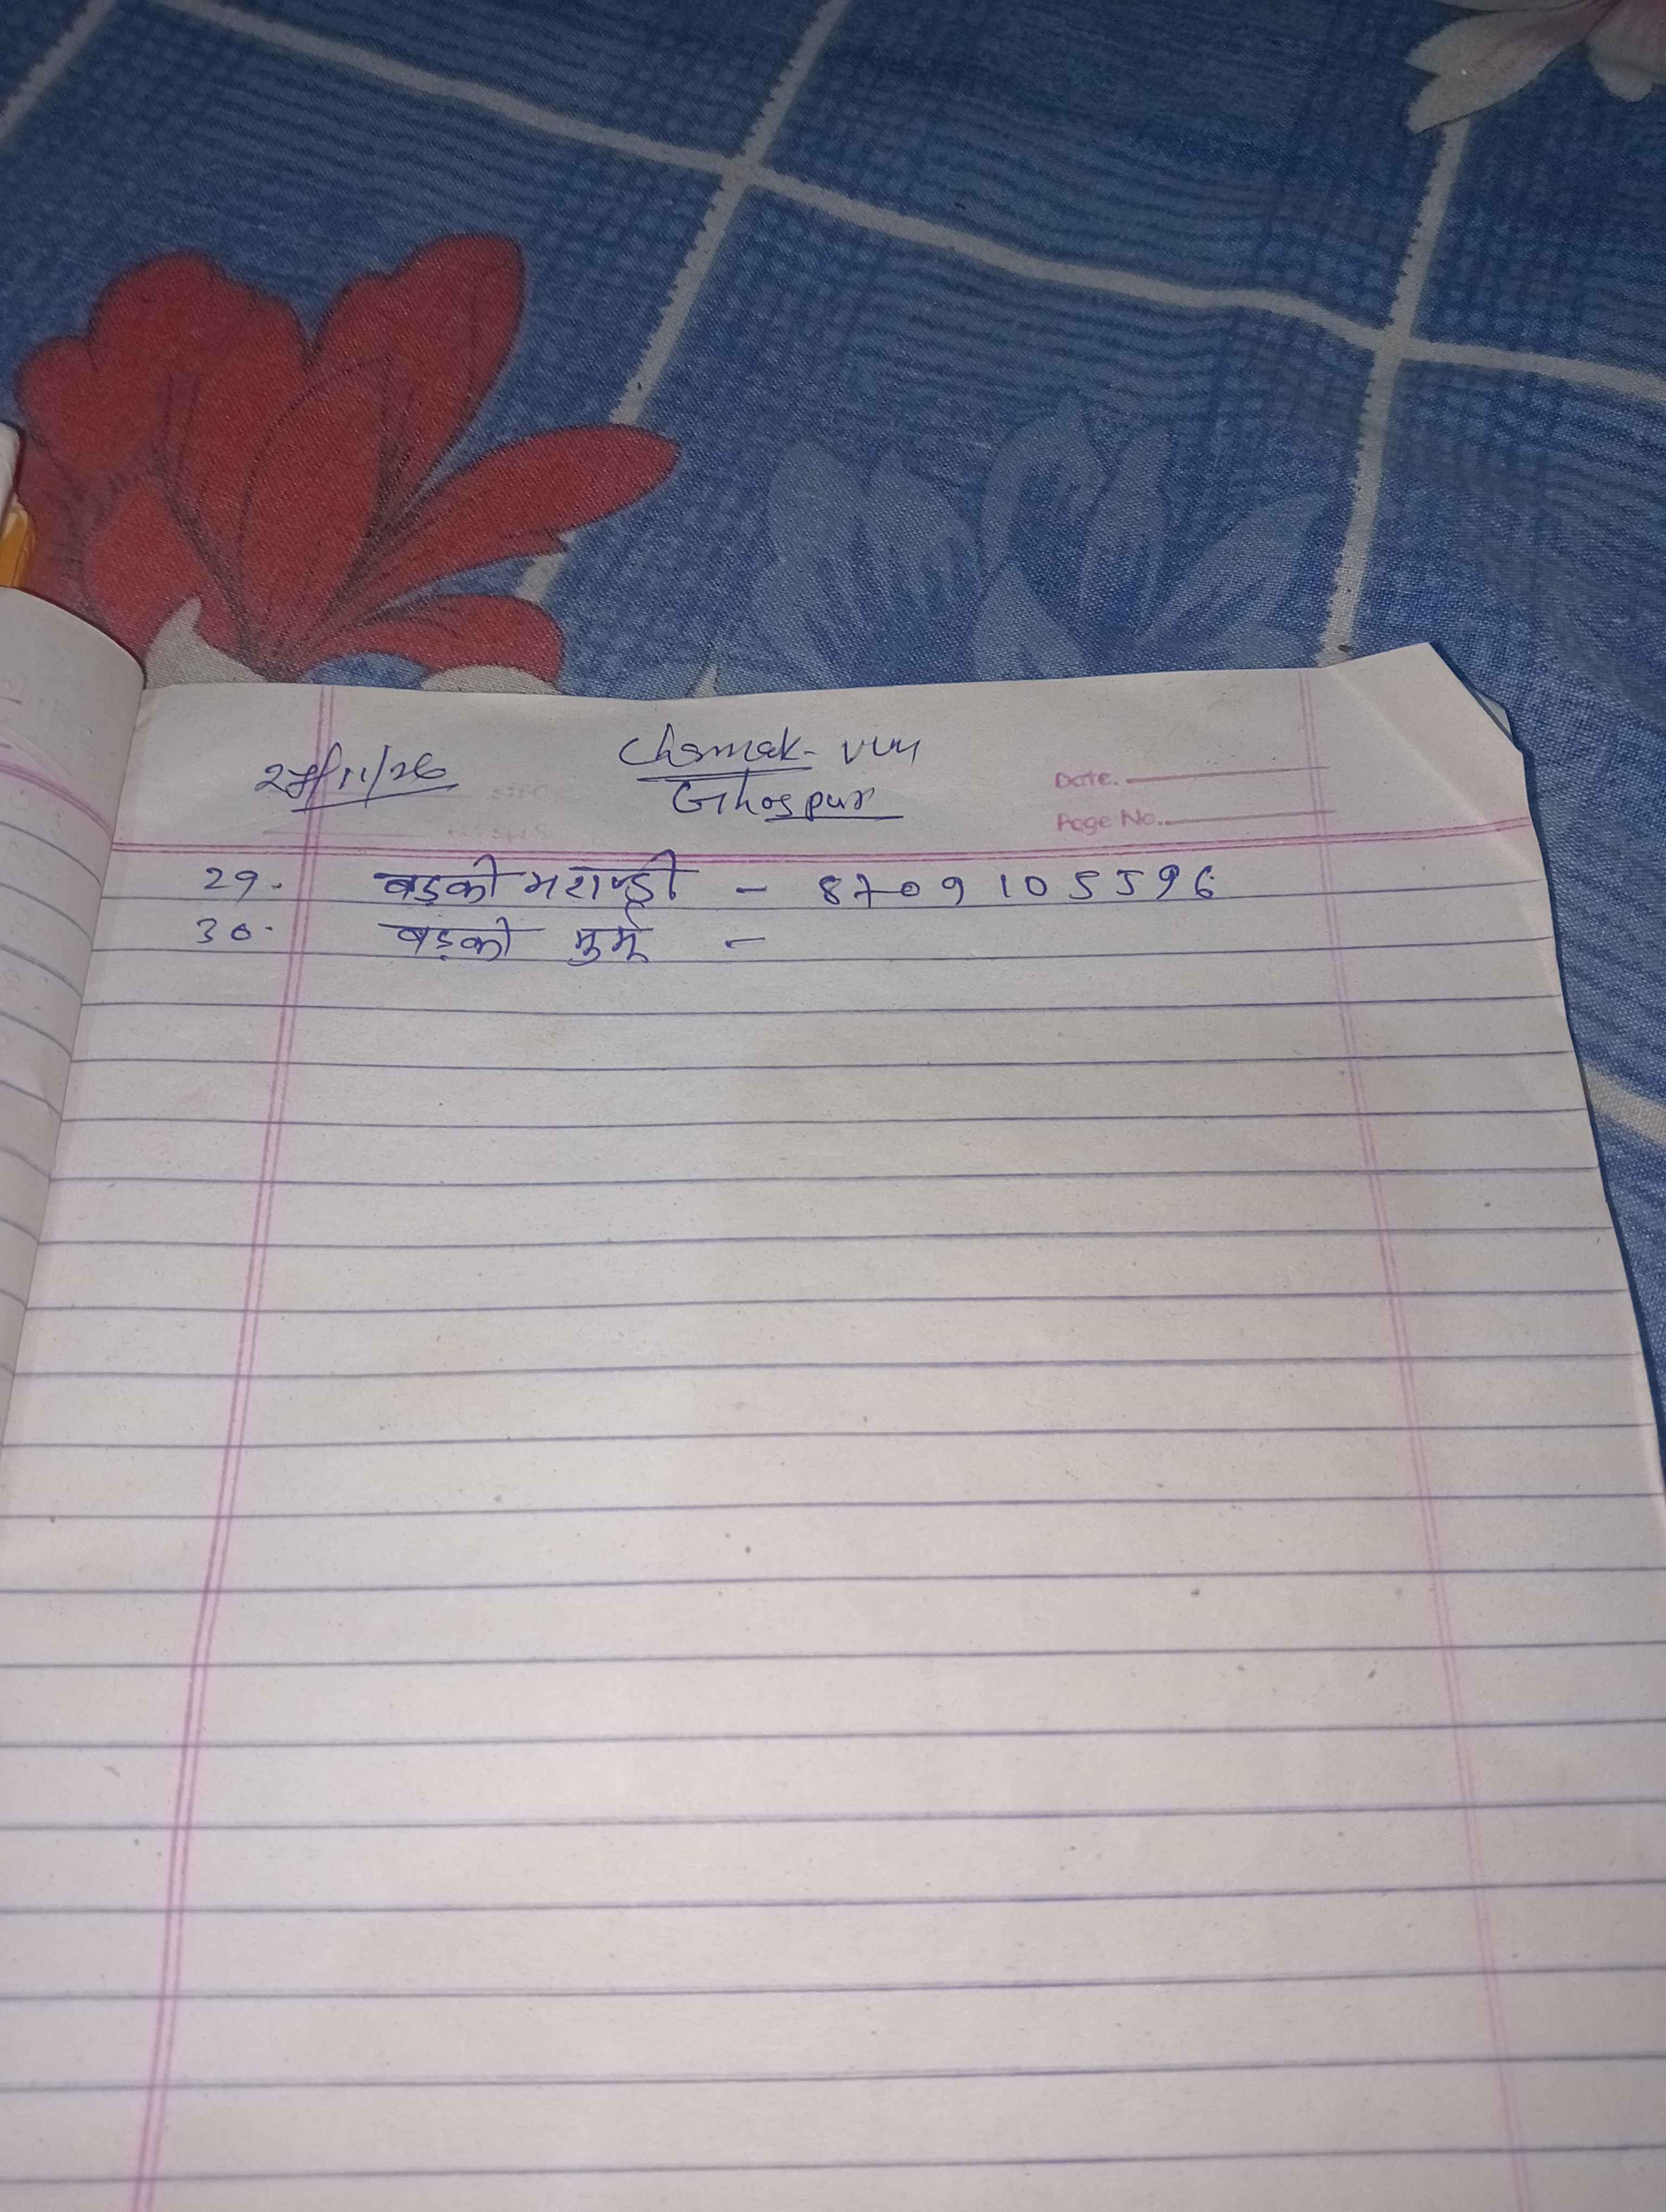 Chamak-
27/11/26
Ghospur
Date.
Page No.
29. बड़की मराण्डी - 8709105596
30. बड़की मुर्मू -